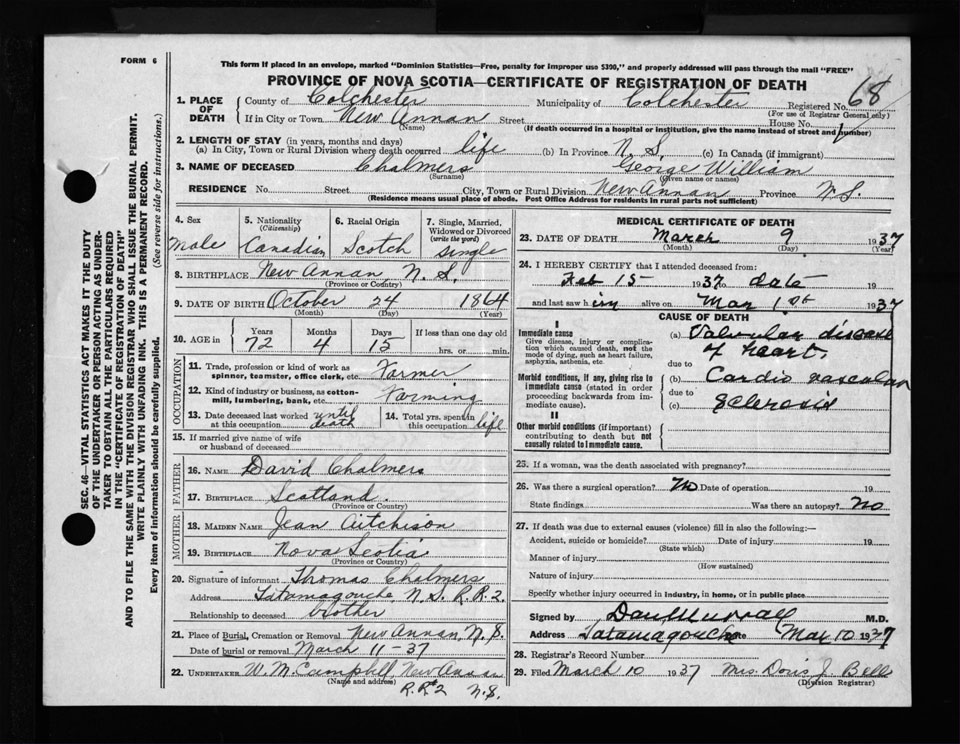 FORM 6
This form if placed in an envelope, marked "Dominion Statistics—Free, penalty for improper use $300," and properly addressed will pass through the mail "FREE"
PROVINCE OF NOVA SCOTIA—CERTIFICATE OF REGISTRATION OF DEATH
SEC. 46—VITAL STATISTICS ACT MAKES IT THE DUTY
OF THE UNDERTAKER OR PERSON ACTING AS UNDER-
TAKER TO OBTAIN ALL THE PARTICULARS REQUIRED
IN THE "CERTIFICATE OF REGISTRATION OF DEATH"
AND TO FILE THE SAME WITH THE DIVISION REGISTRAR WHO SHALL ISSUE THE BURIAL PERMIT.
WRITE PLAINLY WITH UNFADING INK. THIS IS A PERMANENT RECORD.
Every item of information should be carefully supplied. (See reverse side for instructions.)
1. PLACE OF DEATH County of Colchester Municipality of Colchester Registered No. 68
(For use of Registrar General only)
If in City or Town New Annan Street House No.
(Name) (If death occurred in a hospital or institution, give the name instead of street and number)
2. LENGTH OF STAY (in years, months and days)
(a) In City, Town or Rural Division where death occurred life (b) In Province N. S. (c) In Canada (if immigrant)
3. NAME OF DECEASED Chalmers George William
(Surname) (Given name or names)
RESIDENCE No. Street City, Town or Rural Division New Annan Province N.S.
(Residence means usual place of abode. Post Office Address for residents in rural parts not sufficient)
4. Sex 5. Nationality 6. Racial Origin 7. Single, Married,
(Citizenship) Widowed or Divorced
(write the word)
Male Canadian Scotch Single
8. BIRTHPLACE New Annan N. S.
(Province or Country)
9. DATE OF BIRTH October 24 1864
(Month) (Day) (Year)
10. AGE in Years Months Days If less than one day old
72 4 15 hrs. or min.
OCCUPATION
11. Trade, profession or kind of work as
spinner, teamster, office clerk, etc. Farmer
12. Kind of industry or business, as cotton-
mill, lumbering, bank, etc. Farming
13. Date deceased last worked at this occupation until death
14. Total yrs. spent in this occupation life
15. If married give name of wife
or husband of deceased
FATHER
16. NAME David Chalmers
17. BIRTHPLACE Scotland.
(Province or Country)
MOTHER
18. MAIDEN NAME Jean Aitchison
19. BIRTHPLACE Nova Scotia
(Province or Country)
20. Signature of informant Thomas Chalmers
Address Tatamagouche, N. S. R.R. 2.
Relationship to deceased brother
21. Place of Burial, Cremation or Removal New Annan, N. S.
Date of burial or removal March 11-37
22. UNDERTAKER W. M. Campbell, New Annan
(Name and address) R.R.2 N.S.
MEDICAL CERTIFICATE OF DEATH
23. DATE OF DEATH March 9 1937
(Month) (Day) (Year)
24. I HEREBY CERTIFY that I attended deceased from:
Feb 15 1937 to date 19
and last saw him alive on Mar 1st 1937
CAUSE OF DEATH
I
Immediate cause
Give disease, injury or complica-
tion which caused death, not the
mode of dying, such as heart failure,
asphyxia, asthenia, etc.
(a) Valvular disease
of heart.
due to
Morbid conditions, if any, giving rise to
immediate cause (stated in order
proceeding backwards from immediate
cause).
(b) Cardio vascular
due to
(c) Sclerosis
II
Other morbid conditions (if important)
contributing to death but not
causally related to immediate cause.
25. If a woman, was the death associated with pregnancy?
26. Was there a surgical operation? No Date of operation 19
State findings Was there an autopsy? No
27. If death was due to external causes (violence) fill in also the following:—
Accident, suicide or homicide? Date of injury 19
(State which)
Manner of injury
(How sustained)
Nature of injury
Specify whether injury occurred in industry, in home, or in public place
Signed by Dan Murray M.D.
Address Tatamagouche Date Mar 10 1937
28. Registrar's Record Number
29. Filed March 10 1937 Mrs. Doris J. Bell
(Division Registrar)